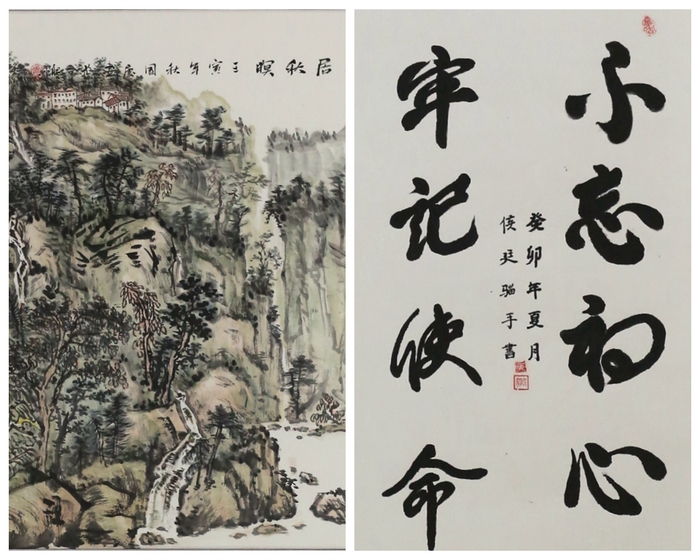 居秋暝 壬寅年秋
不忘初心
牢记使命
癸卯年夏月
手書